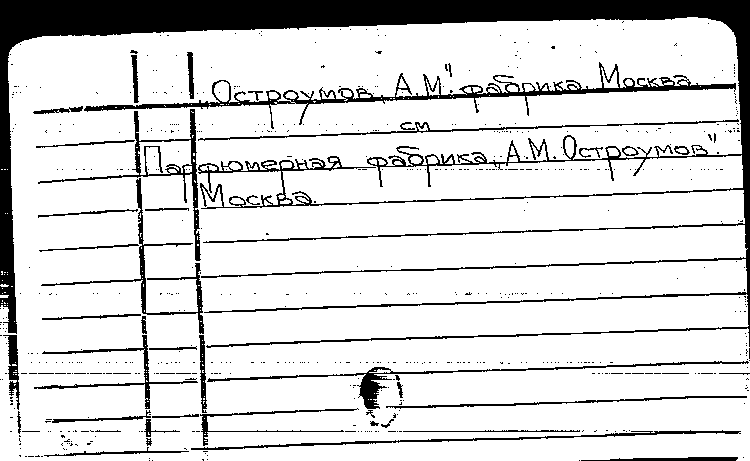 „Остроумов, А.М." фабрика. Москва.
см
Парфюмерная фабрика „А.М. Остроумов".
Москва.